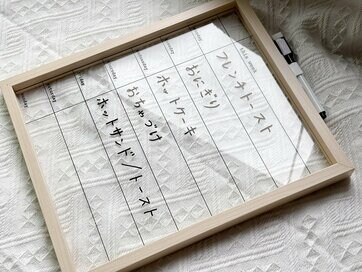 フレンチトースト
おにぎり
ホットケーキ
おちゃづけ
ホットサンド/トースト